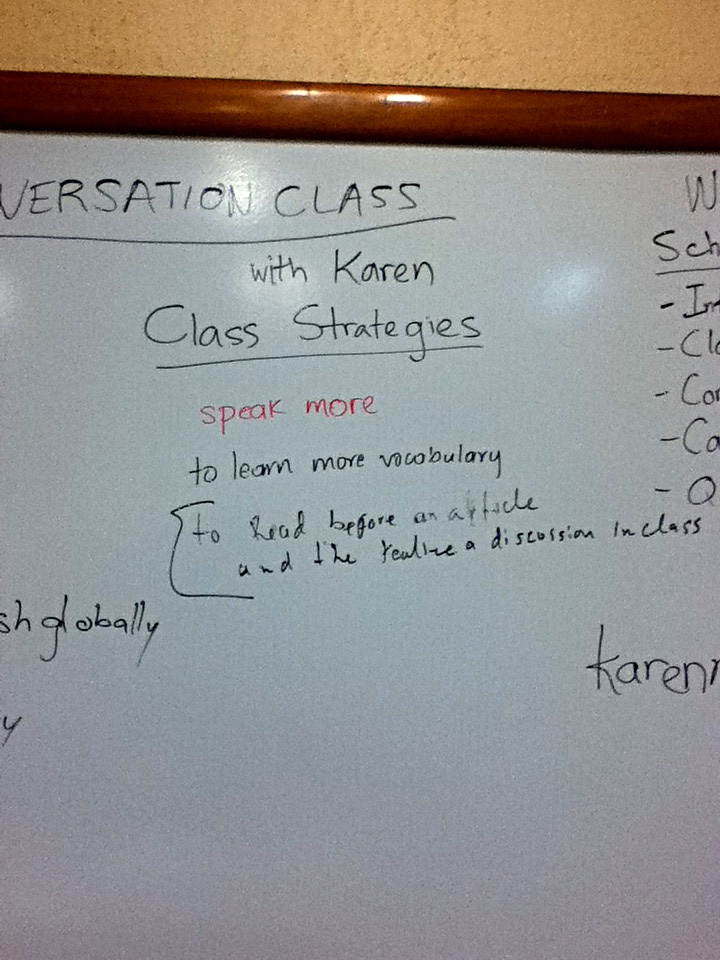 VERSATION CLASS
with Karen
Class Strategies
speak more
to learn more vocobulary
to Read before an article
and the realize a discussion in class
sh globally
y
W
Sch
- In
- Cla
- Con
- Ca
- O
karenr